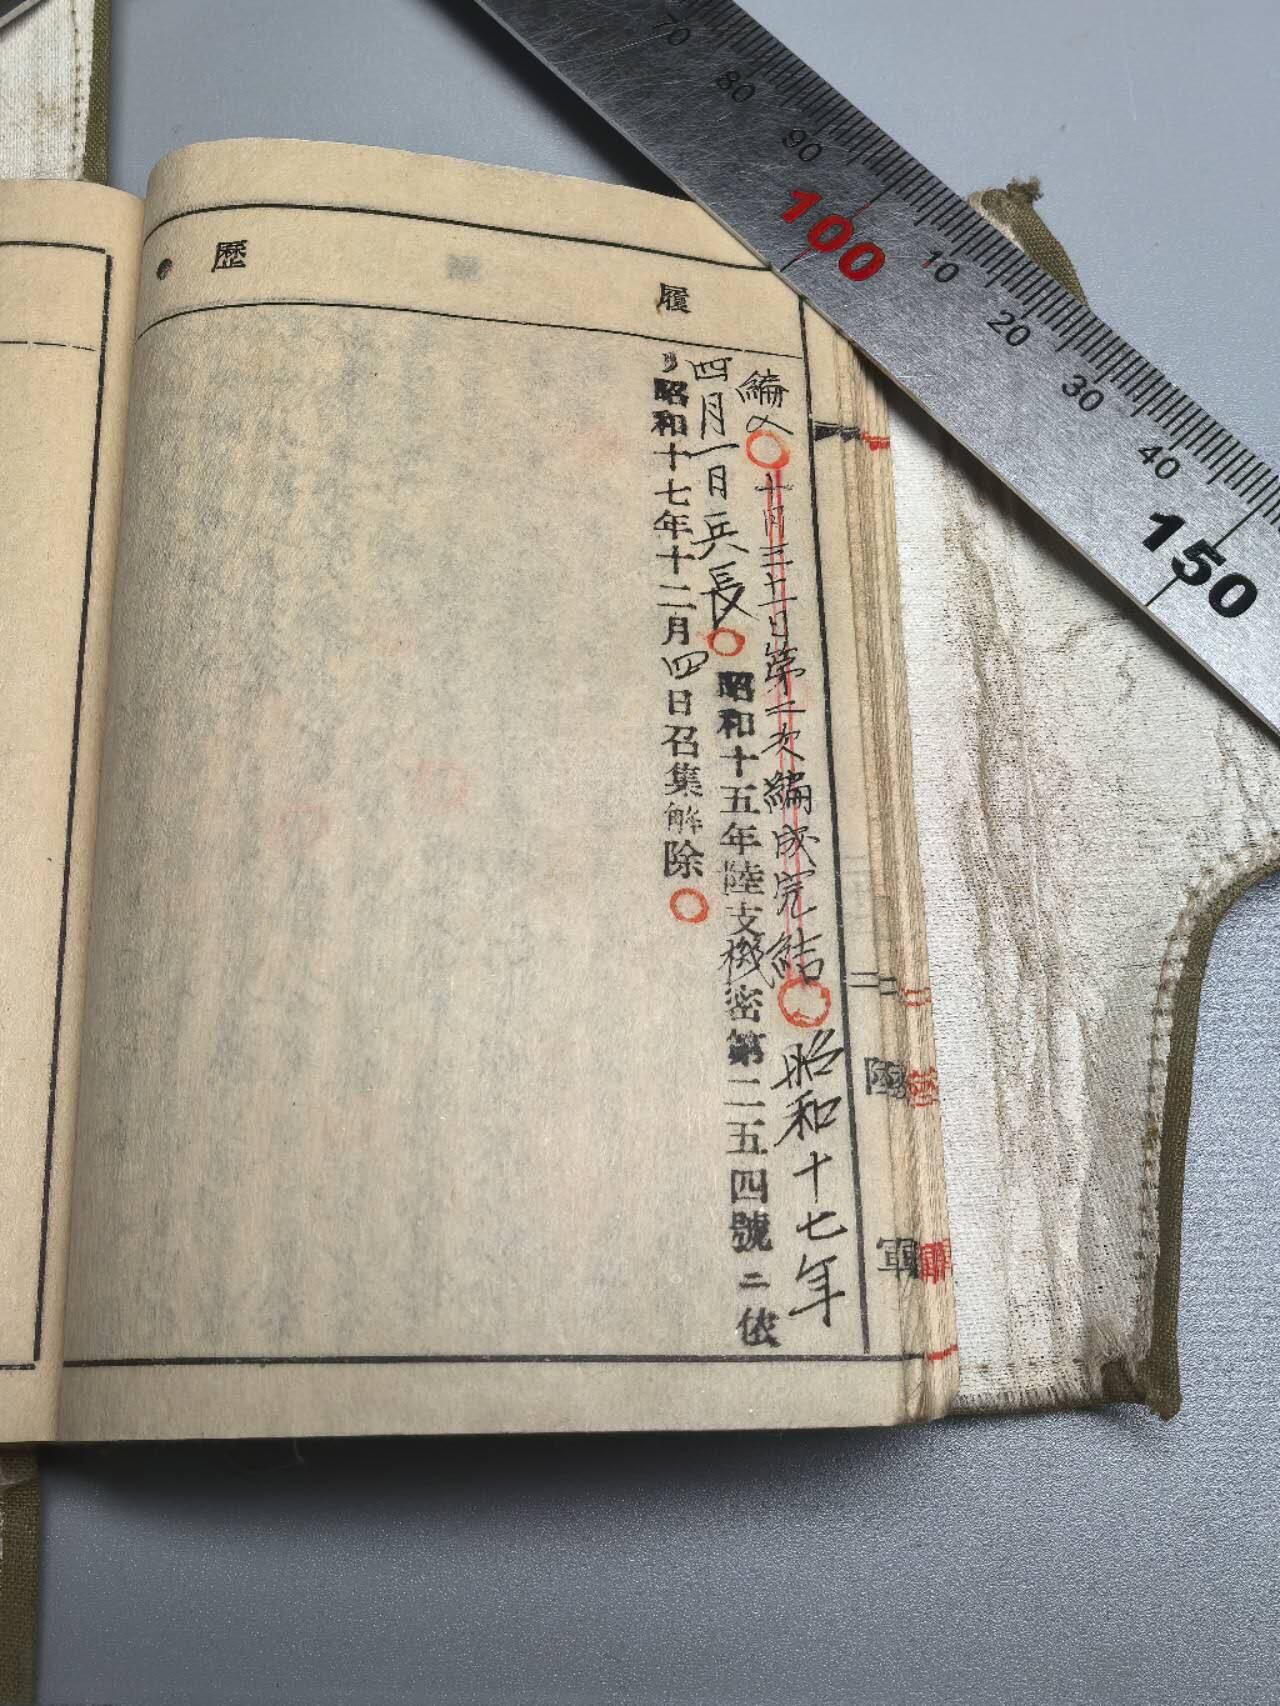 履歴
編入〇十月三十一日第二次編成完結〇昭和十七年
四月一日兵長〇昭和十五年陸支機密第二五四號ニ依
リ昭和十七年十二月四日召集解除〇
陸軍
70 80 90 100 10 20 30 40 150